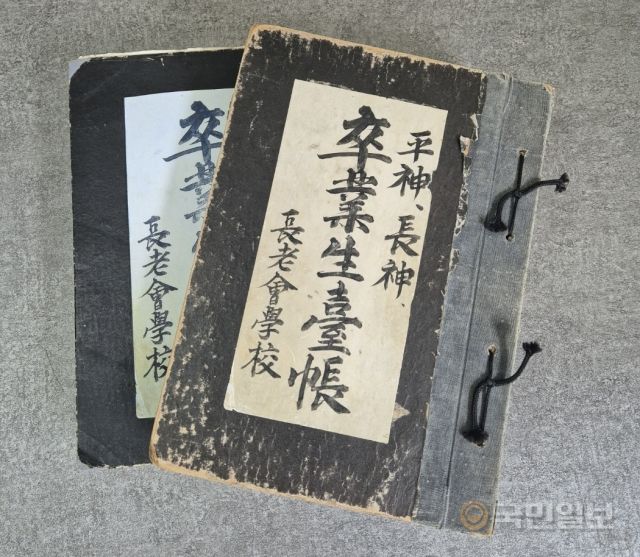 平神、長神、
卒業生臺帳
長老會學校
卒業
長老會學校
국민일보